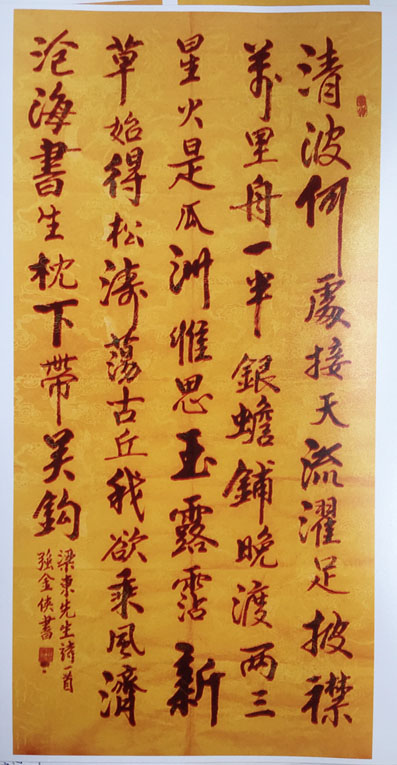 清波何處接天流濯足披襟
萬里舟一半銀蟾鋪晚渡兩三
星火是瓜洲惟思玉露霑新
草始得松濤蕩古丘我欲乘風濟
滄海書生枕下帶吴鈎
梁東先生詩一首
強金俠書